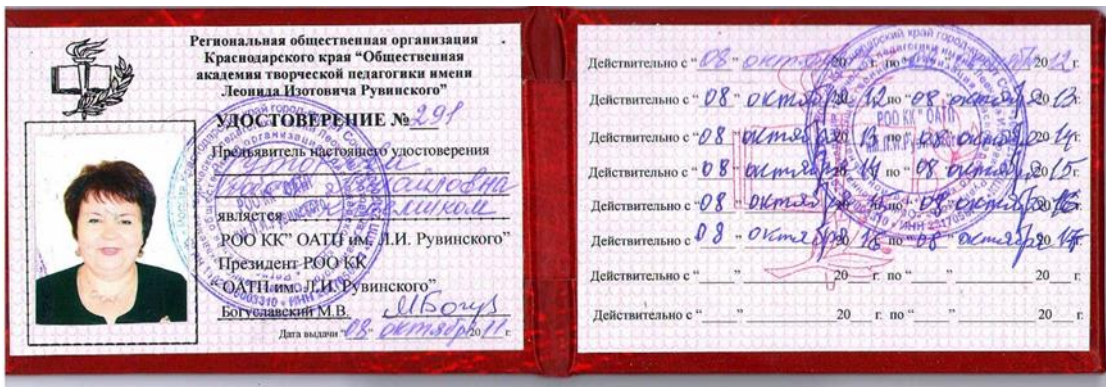 Региональная общественная организация
Краснодарского края "Общественная
академия творческой педагогики имени
Леонида Изотовича Рувинского"
УДОСТОВЕРЕНИЕ № 291
Предъявитель настоящего удостоверения
является
РОО КК" ОАТП им. Л.И. Рувинского"
Президент РОО КК
"ОАТП им. Л.И. Рувинского"
Богуславский М.В.
Дата выдачи "08" октября 2011 г.
Действительно с "08" октября 20 г. по 2012 г.
Действительно с "08" октября 2012 по "08" октября 2013
Действительно с "08" октября 2013 по "08" октября 2014
Действительно с "08" октября 2014 по "08" октября 2015
Действительно с "08" октября по "08" октября 20
Действительно с "08" октября 20 по "08" октября 20
Действительно с " " 20 г. по " " 20 г.
Действительно с " " 20 г. по " " 20 г.
РОО КК " ОАТП
им. Л.И. Рувинского